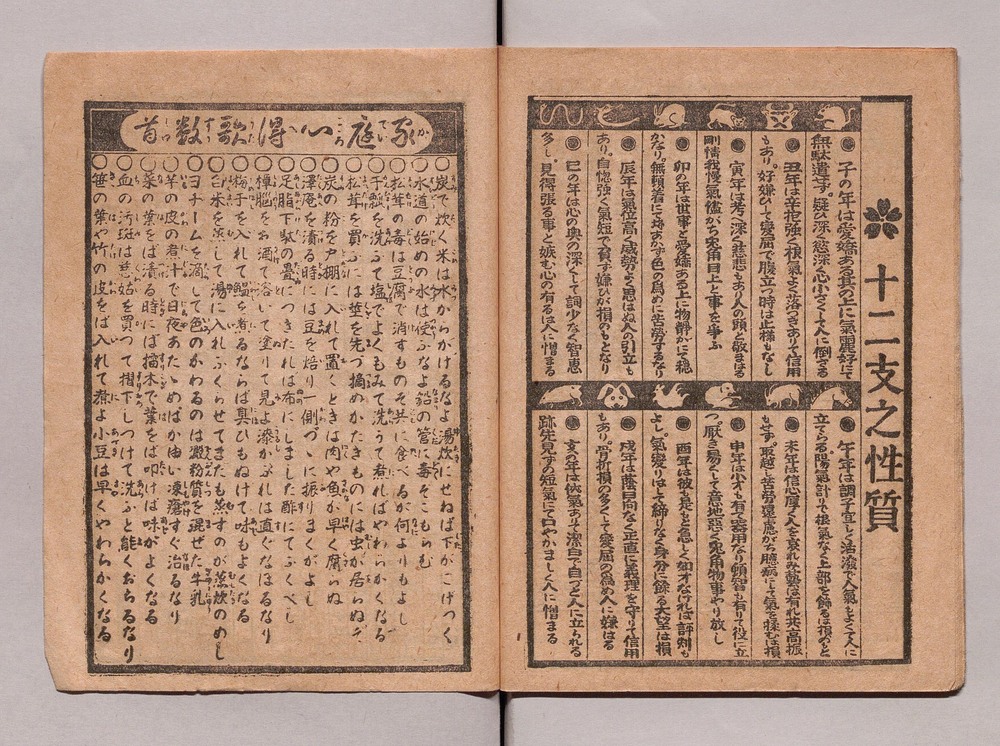 十二支之性質
子の年は愛嬌ある其の上に氣麗好にて
無駄遣せず。疑ひ深く慾深く心小さくて人に倒さる
丑年は辛抱強く根氣よく落つきありて信用
もあり。好嫌ひして変屈で腹立つ時は止様もなし
寅年は考へ深く慈悲もあり人の頭と敬まはる
剛情我慢氣儘がち兎角目上と事を爭ふ
卯の年は世事と愛嬌ある上に物静かにて穏
かなり。無頓着にて埒あかず色の為めに苦労するなり
辰年は氣位高く威勢よく思はぬ人の引立も
あり。自惚強く氣短で負ず嫌ひが損のもとなり
巳の年は心の奥の深くして詞少なく智恵
多し。見得張る事と嫉む心の有るは人に憎まる
午年は調子宜しく活溌で人氣もよくて人に
立てらる。陽氣計りで根氣なく上部を飾るは損のもと
未年は信心厚く人を哀れみ藝は有れ共高振
もせず。取越し苦労遠慮がち臆病にして氣を揉むは損
申年は小才も有て器用なり頓智も有りて役に立
つ。厭き易くして意地悪く兎角物事やり放し
酉年は彼も是もと急しく如才なければ評判も
よし。氣変りはして締りなく身分に餘る大望は損
戌年は蔭日向なく正直に義理を守りて信用
もあり。骨折損の多くして変屈の為め人に嫌はる
亥の年は侠氣ありて潔白で自づと人に立られる
跡先見ずの短氣にて口やかましく人に憎まる
家庭心得歌数首
○炭で炊く米は水からかけるなよ湯炊せねば下がこげつく
○水道の始めの水は使ふなよ鉛の管に毒そこもらむ
○松茸の毒は豆腐で消すものそ共に食べるが何よりもよし
○干瓢を洗ふて塩でよくもみて洗うて煮ればやわらかくなる
○松茸を買ふには茎を先づ摘めかたきものには虫が居らぬぞ
○炭の粉を戸棚に入れて置くときは肉や魚が早く腐らぬ
○澤庵を漬る時には豆を焙り一側づゝに振りまくがよし
○足脂下駄の畳につきたれば布にしました酢にてふくべし
○樟脳をお酒で容いて塗りて見よ漆かぶれは直ぐなほるなり
○梅干を入れて鰮を煮るならば臭ひもぬけて味もよくなる
○白米を蒸して湯に入れふくらせてまたも蒸すのが蒸炊のめし
○ヨヂームを滴して色のかわるのは澱粉質を混ぜた牛乳
○芋の皮の煮汁で日夜あたゝめばか油い凍瘡すぐ治るなり
○菜の葉をば漬る時には擂木で葉を叩けば味がよくなる
○血の汚斑は慈姑を買つて摺下しつけて洗ふと能くおちるなり
○笹の葉や竹の皮をば入れて煮よ小豆は早くやわらかくなる